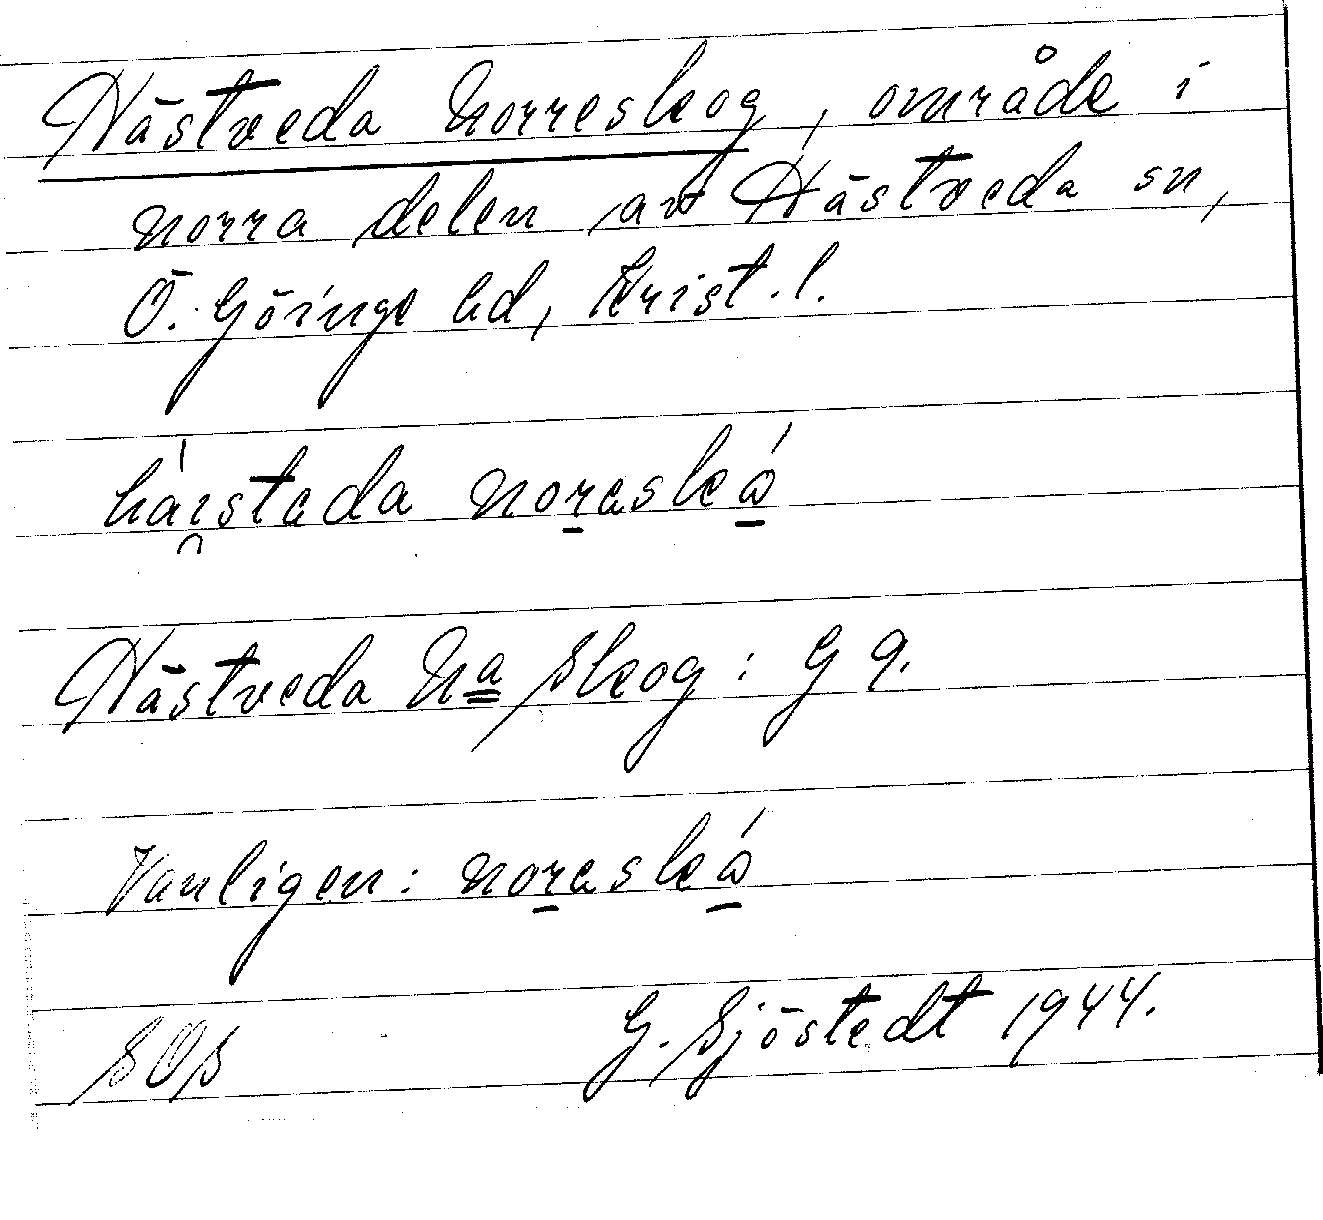 Hästveda Norreskog, område i
norra delen av Hästveda sn,
Ö. Göinge hd, Krist. l.
háı̯stada noraskǻ
Hästveda Na Skog: G 9.
Vanligen: noraskǻ
SOS G. Sjöstedt 1944.